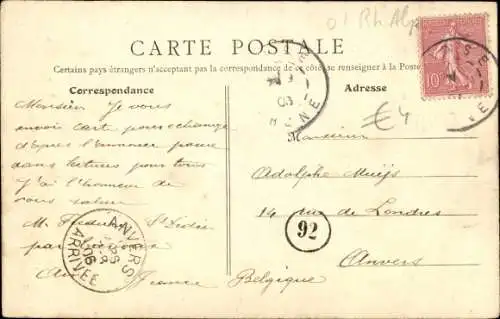 01 Rh. Alp
CARTE POSTALE
Certains pays étrangers n'acceptant pas la correspondance de ce côté se renseigner à la Poste
Correspondance
Adresse
10
€4
Monsieur Je vous
envoie carte pour echange
d'apres l'annonce parue
dans lectures pour tous
J'ai l'honneur de
vous saluer
M. St Didier
par
Ain France
Monsieur
Adolphe Muijs
14 rue de Londres
Anvers
Belgique
92
ANVERS
1906
ARRIVEE